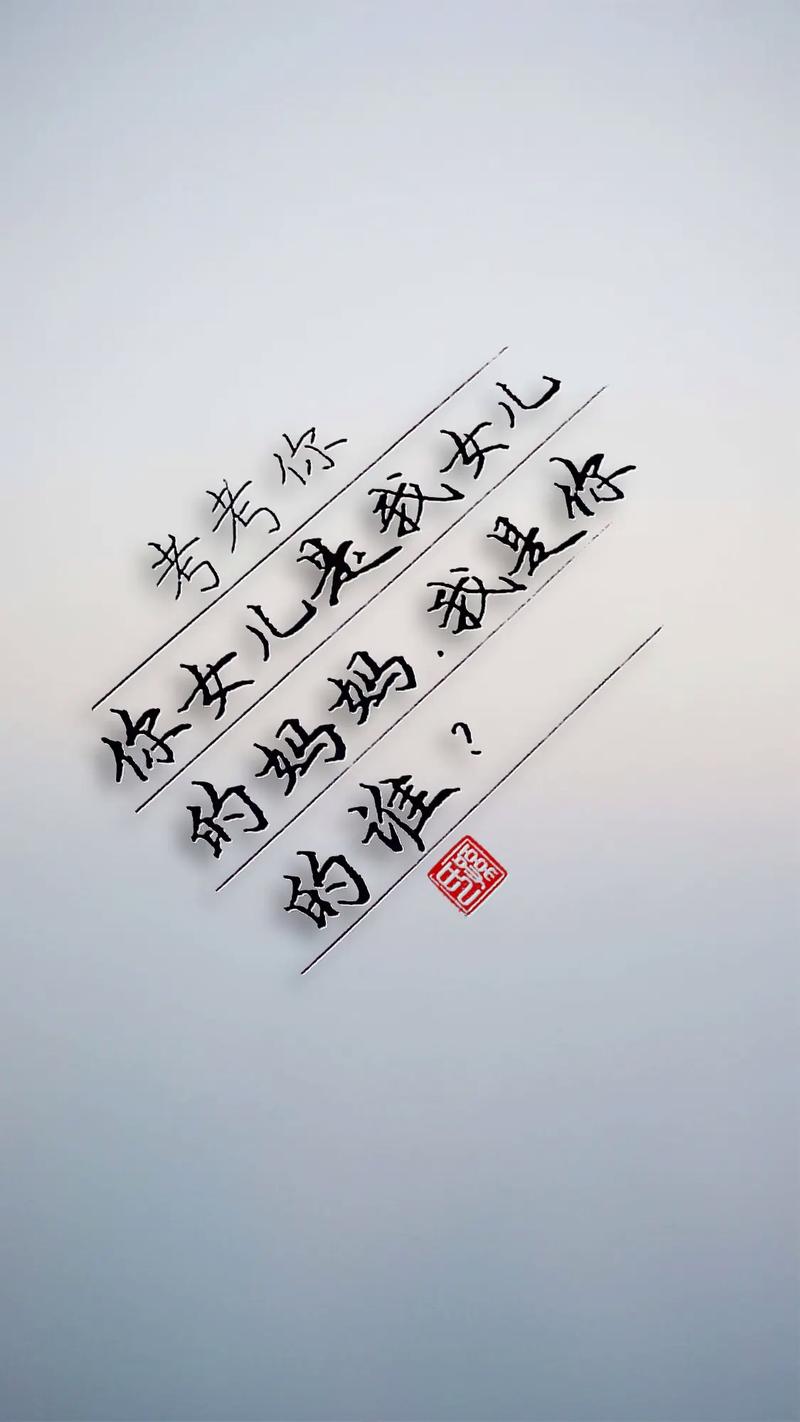 考考你
你女儿是我女儿
的妈妈.我是你
的谁?